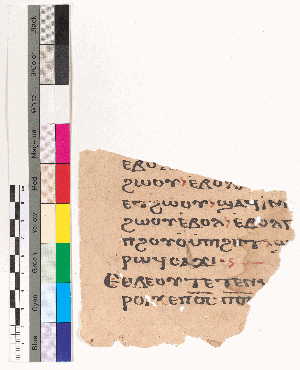 Black
3/Color
White
Magenta
Red
Yellow
Green
Cyan
Blue
ⲉⲃⲟⲗ
ϩⲱⲟⲩ ⲉⲃⲟⲗ
ⲉⲧϩⲱⲟⲩ ϣⲁϥⲓⲛⲓ
ϩⲱⲟⲩ ⲉⲃⲟⲗ ⲉⲃⲟⲗ
ⲣⲱϥⲥⲁϫⲓ
Ⲉⲑⲃⲉⲟⲩ ⲧⲉⲧⲉⲛ
ⲣⲟⲓϫⲉⲡⲟⲥ